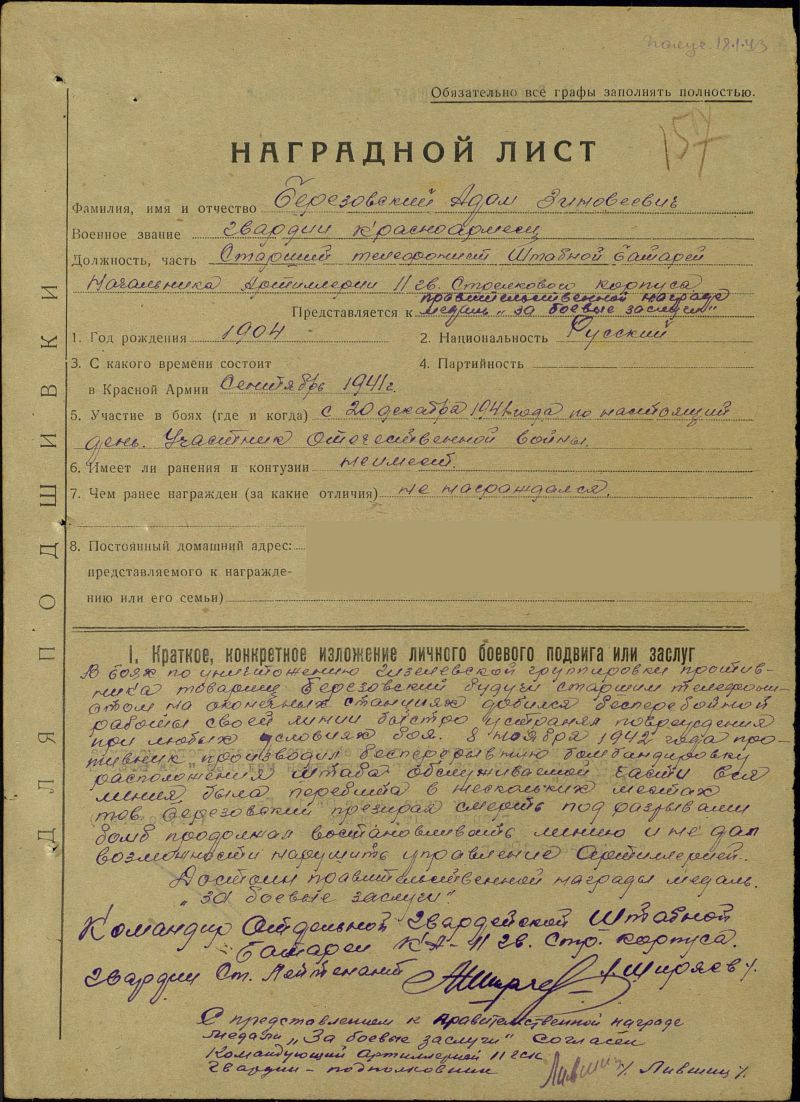 Получ. 18.1.43
Обязательно все графы заполнять полностью.
157
НАГРАДНОЙ ЛИСТ
Фамилия, имя и отчество Березовский Адам Зиновеевич
Военное звание гвардии Красноармеец
Должность, часть Старший телефонист Штабной батареи
Начальника Артиллерии 11 гв. Стрелкового корпуса
Представляется к правительственной награде
медаль „за боевые заслуги"
1. Год рождения 1904 2. Национальность Русский
3. С какого времени состоит 4. Партийность
в Красной Армии Сентябрь 1941 г.
5. Участие в боях (где и когда) с 20 декабря 1941 года по настоящий
день. Участник Отечественной войны.
6. Имеет ли ранения и контузии неимеет.
7. Чем ранее награжден (за какие отличия) не награждался.
8. Постоянный домашний адрес:
представляемого к награжде-
нию или его семьи)
ДЛЯ ПОДШИВКИ
I. Краткое, конкретное изложение личного боевого подвига или заслуг
В боях по уничтожению гизелевской группировки против-
ника товарищ Березовский будучи старшим телефони-
стом на оконечных станциях добился бесперебойной
работы своей линии быстро устранял повреждения
при любых условиях боя. 8 ноября 1942 года про-
тивник производил беспрерывную бомбандировку
расположения штаба обслуживаемой части вся
линия была перебита в нескольких местах
тов. Березовский презирая смерть под разрывами
бомб продолжал востановливать линию и не дал
возможности нарушить управление Артиллерией.
Достоин правительственной награды медаль
„за боевые заслуги".
Командир Отдельной Гвардейской Штабной
Батареи КА-11 гв. Стр. корпуса.
Гвардии Ст. Лейтенант /Ширяев/.
С представлением к правительственной награде
медали „За боевые заслуги" согласен
Командующий Артиллерией 11 гск
гвардии-подполковник Лившиц /Лившиц/